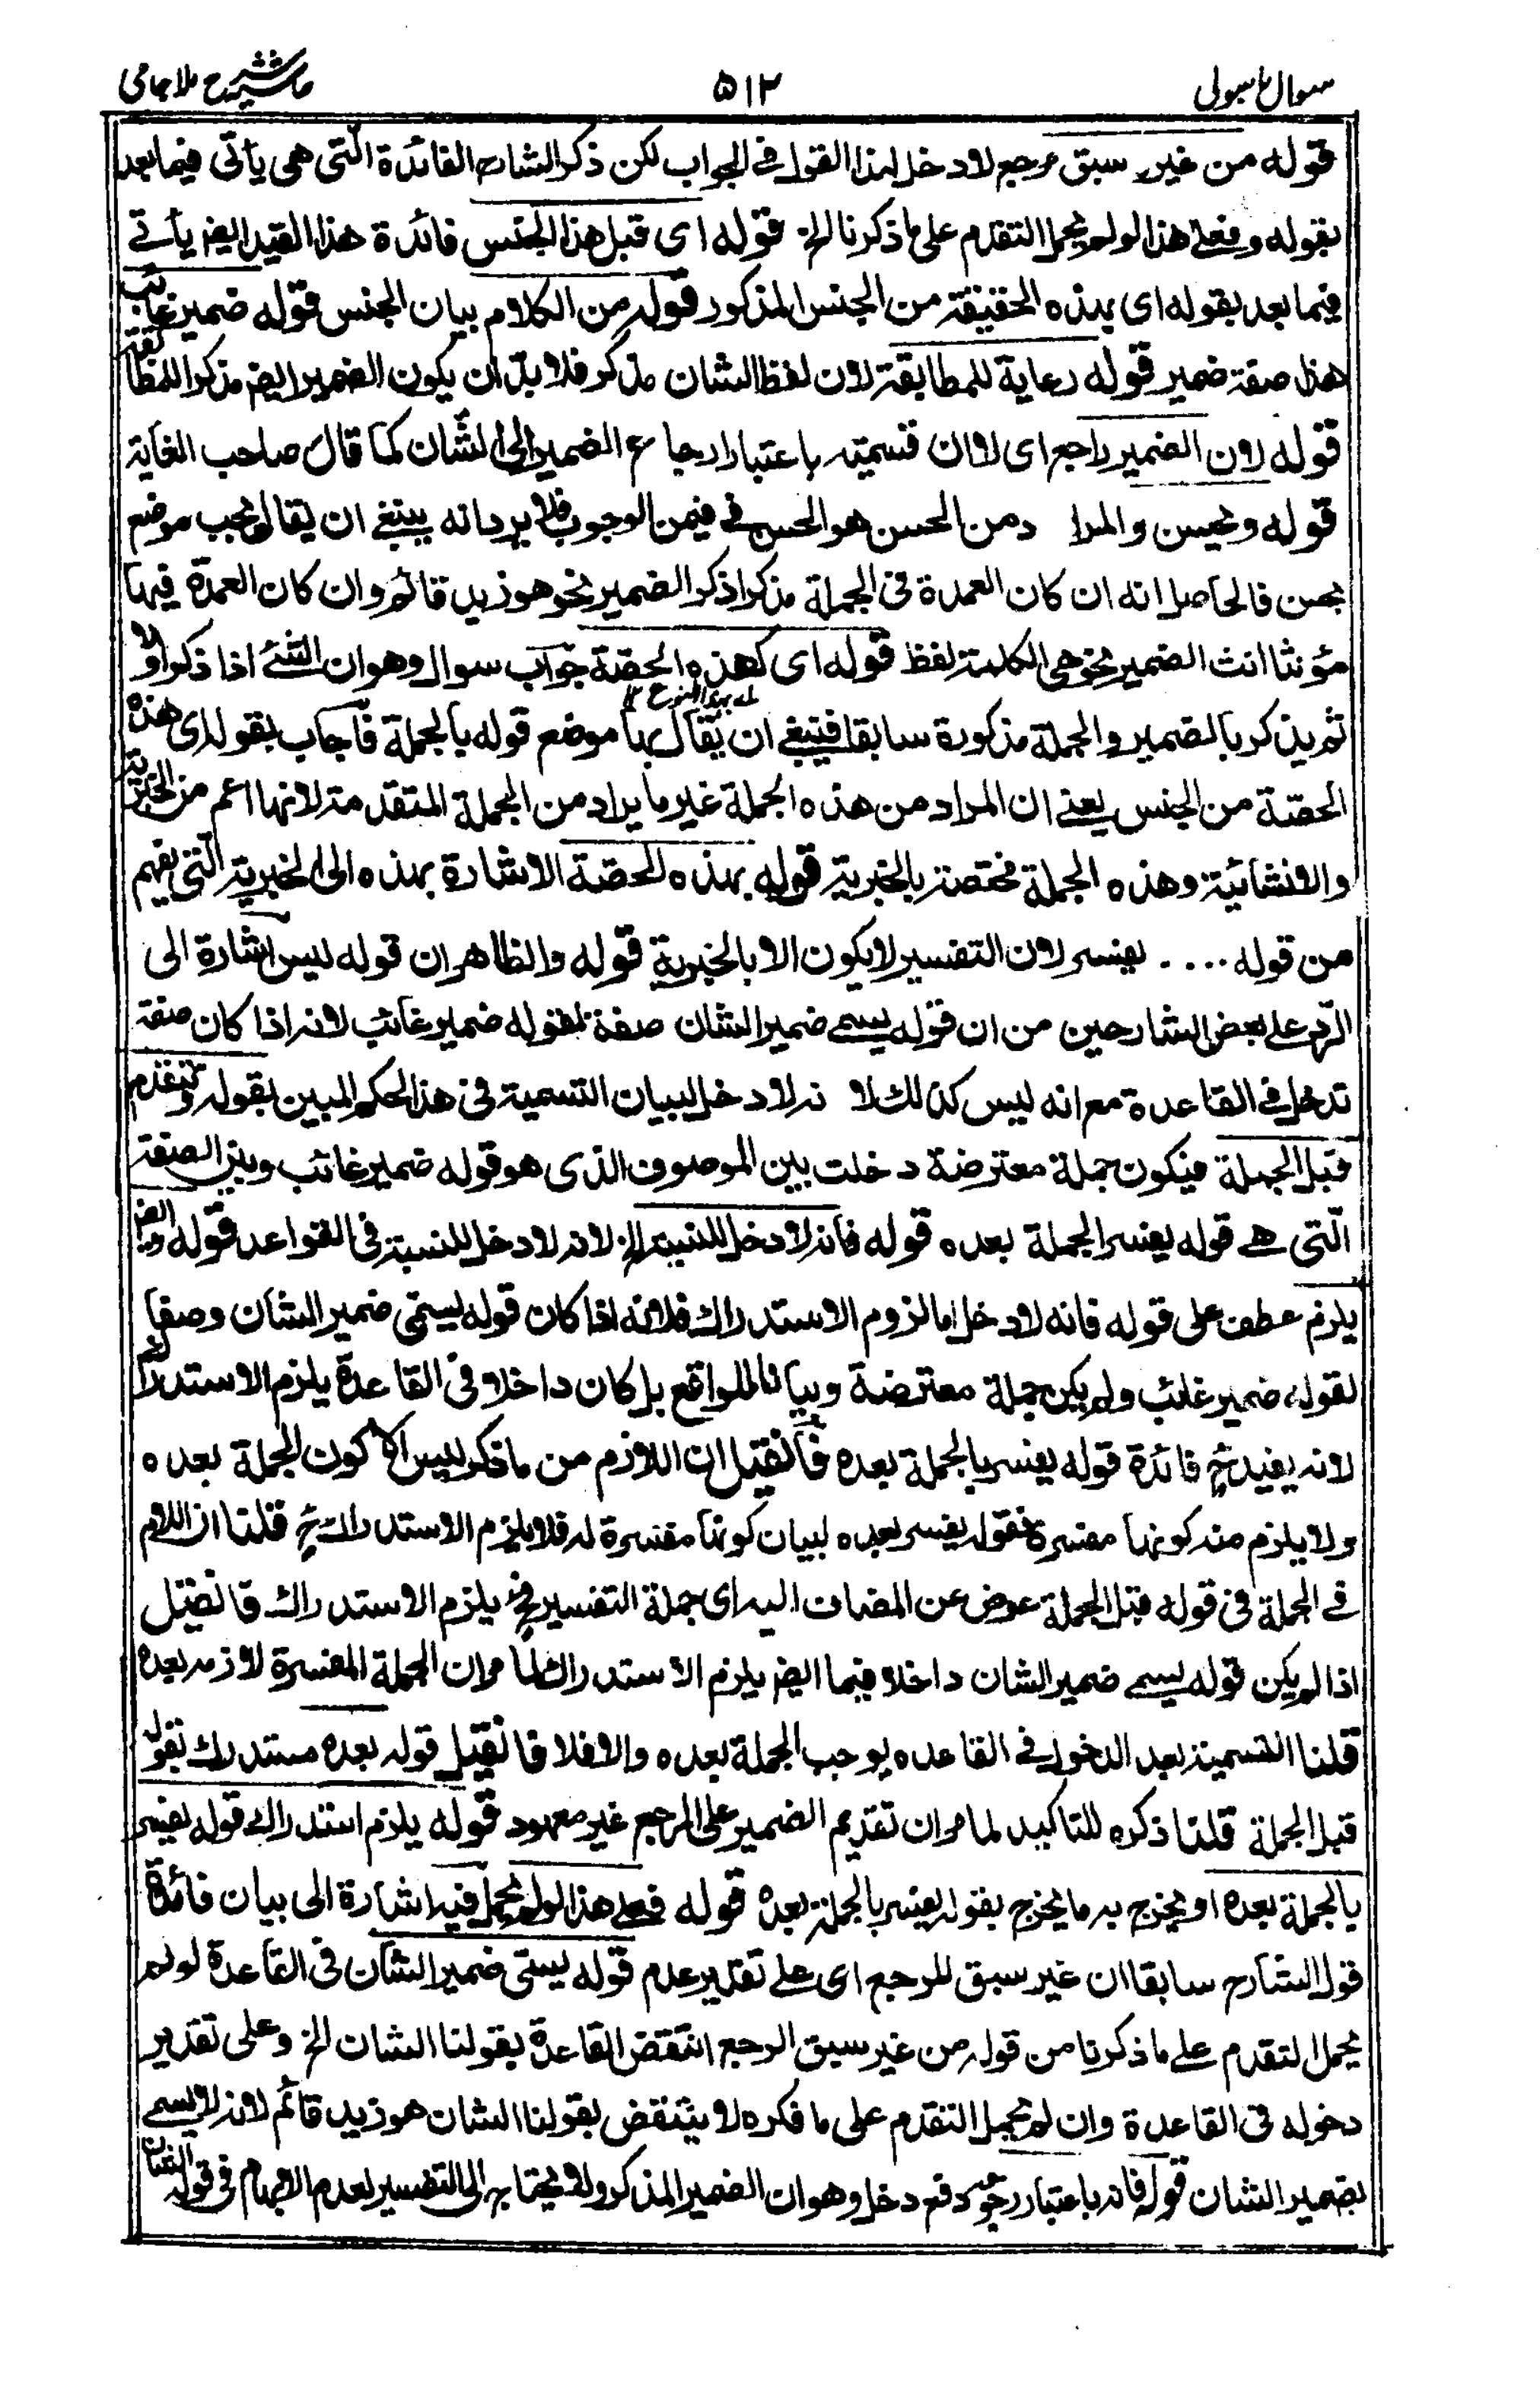 سوال باسولی ۵۱۲ حاشیه شرح ملا جامی
قوله من غير سبق مرجع لا دخل لهذا القول فى الجواب لكن ذكر الشارح الفائدة الّتى هى يأتى فيما بعد
بقوله وفعلے هذا لو لم يحمل التقدم على ما ذكرنا الخ قوله اى قبل هذا الجنس فائدة هذا القيد ايضا يأتے
فيما بعد بقوله اى بهذه الحقيقة من الجنس المذكور قوله من الكلام بيان الجنس قوله ضمير غائب
هذا صفة ضمير قوله رعاية للمطابقة لان لفظ الشان مذكر فلا بدّ ان يكون الضمير ايضا مذكرا للمطابقة
قوله لان الضمير راجع اى لان تسميته باعتبار ارجاع الضمير الى الشان كما قال صاحب الغاية
قوله ويحسن والمراد من الحسن هو الحسن فى ضمن الوجوب فلا يرد انه ينبغى ان يقال يجب موضع
يحسن فالحاصل انه ان كان العمدة فى الجملة مذكرا ذكر الضمير نحو هو زيد قائم وان كان العمدة فيها
مؤنثا انث الضمير نحو هى الكلمة لفظ قوله اى كهذه الحصّة جواب سوال وهو ان الشئ اذا ذكر اولا
ثم يذكر بالضمير والجملة مذكورة سابقا فينبغے ان يقال بها موضع قوله بالجملة فاجاب بقوله اى هذه
الحصّة من الجنس يعنے ان المراد من هذه الجملة غير ما يراد من الجملة المتقدمة لانها اعم من الخبرية
والانشائية وهذه الجملة مختصة بالخبرية قوله بهذه الحصّة الاشارة بهذه الى الخبرية الّتى يفهم
من قوله .... يفسر لان التفسير لا يكون الا بالخبرية قوله والظاهر ان قوله ليس اشارة الى
الرّد على بعض الشارحين من ان قوله يسمے ضمير الشان صفة لقوله ضمير غائب لانه اذا كان صفة
تدخل فے القاعدة مع انه ليس كذلك لا نه لا دخل لبيان التسمية فى هذا الحكم المبين بقوله ويتقدم
قبل الجملة فيكون جملة معترضة دخلت بين الموصوف الذى هو قوله ضمير غائب وبين الصفة
الّتى هے قوله يفسر الجملة بعده قوله فانه لا دخل للتسمية الخ لانه لا دخل للنسبة فى القواعد قوله وايضا
يلزم عطف على قوله فانه لا دخل اما لزوم الاستدراك فلانه اذا كان قوله يسمّى ضمير الشان وصفا
لقوله ضمير غائب ولم يكن جملة معترضة وبيانا للواقع بل كان داخلا فى القاعدة يلزم الاستدراك
لانه يفيد ح فائدة قوله يفسر بالجملة بعده فان قيل ان اللازم من ما ذكر ليس الا كون الجملة بعده
ولا يلزم منه كونها مفسرة فقوله يفسر بعده لبيان كونها مفسرة له فلا يلزم الاستدراك ح قلنا ان اللام
فے الجملة فى قوله قبل الجملة عوض عن المضاف اليه اى جملة التفسير فح يلزم الاستدراك فان قيل
اذا لم يكن قوله يسمے ضمير الشان داخلا فيها ايضا يلزم الاستدراك لما مر ان الجملة المفسرة لازمة بعده
قلنا التسمية بعد الدخول فے القاعده يوجب الجملة بعده والا فلا فان قيل قوله بعده مستدرك بقوله
قبل الجملة قلنا ذكره للتاكيد لما مر ان تقديم الضمير على المرجع غير معهود قوله يلزم استدراك قوله يفسر
بالجملة بعده او يخرج به ما يخرج بقوله يفسر بالجملة بعده قوله فعلے هذا لو لم يحمل فيه اشارة الى بيان فائدة
قول الشارح سابقا ان غير سبق المرجع اى علے تقدير عدم قوله يسمّى ضمير الشان فى القاعدة لو لم
يحمل التقدم علے ما ذكرنا من قوله من غير سبق المرجع انتقض القاعدة بقولنا الشان الخ وعلى تقدير
دخوله فى القاعدة وان لم يحمل التقدم على ما ذكره لا ينتقض بقولنا الشان هو زيد قائم لانه لا يسمے
بضمير الشان قوله فانه باعتبار رجوعه دفع دخل وهو ان الضمير المذكور لا يحتاج الى التفسير لعدم الابهام فى قولنا الشان